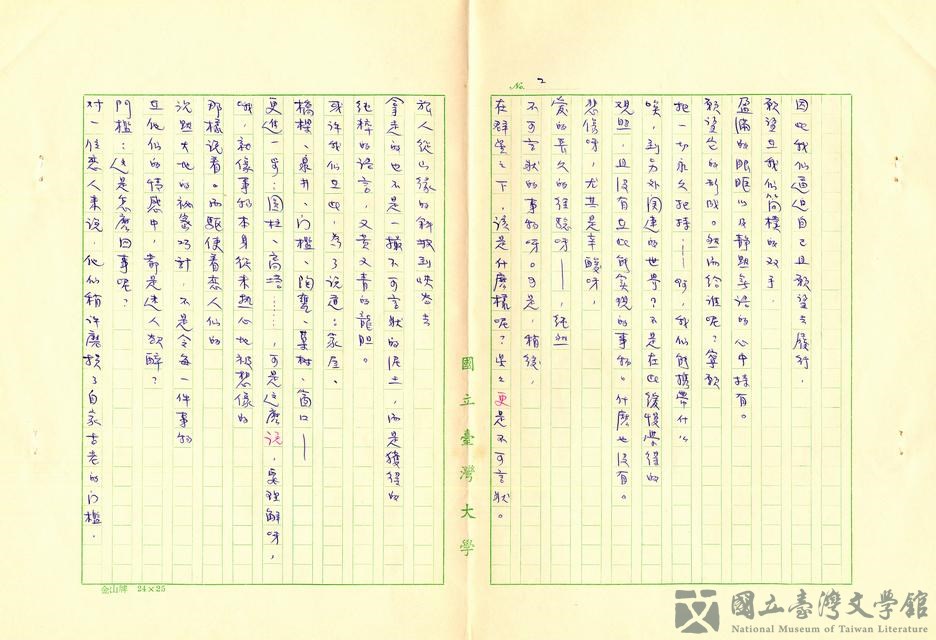 No. 2
因此我們逼迫自己且欲望去履行，
欲望在我們簡樸的双手，
盈滿的眼眶以及靜默無語的心中持有。
欲望它的形成。然而給誰呢？寧願
把一切永久把持……啊，我們能携帶什么
唉，到另外関連的世界？不是在此緩慢學得的
觀照，且沒有在此所实現的事物。什麼也沒有。
悲傷呀，尤其是辛酸呀，
愛的長久的経驗呀——，純然
不可言狀的事物呀。可是，稍後，
在群星之下，該是什麼樣呢？它們更是不可言狀。
旅人從山緣的斜坡到峽谷去
拿走的也不是一撮不可言狀的泥土，而是獲得的
純粹的語言，又黃又青的龍胆。
或許我們在此，為了說道：家屋。
橋樑、泉井、门檻、陶甕、菓樹、窗口——
更進一步：圓柱、高塔……，可是這麼說，要理解呀，
哦，就像事物本身從未熱心地被想像的
那樣說着。而驅使着恋人们的
沉默大地的祕密巧計，不是令每一件事物
在他们的情感中，都是迷人欲醉？
門檻：這是怎麼回事呢？
对一位恋人来說，他们稍许磨損了自家古老的门檻，
國立臺灣大學
金山牌 24×25
國立臺灣文學館
National Museum of Taiwan Literature